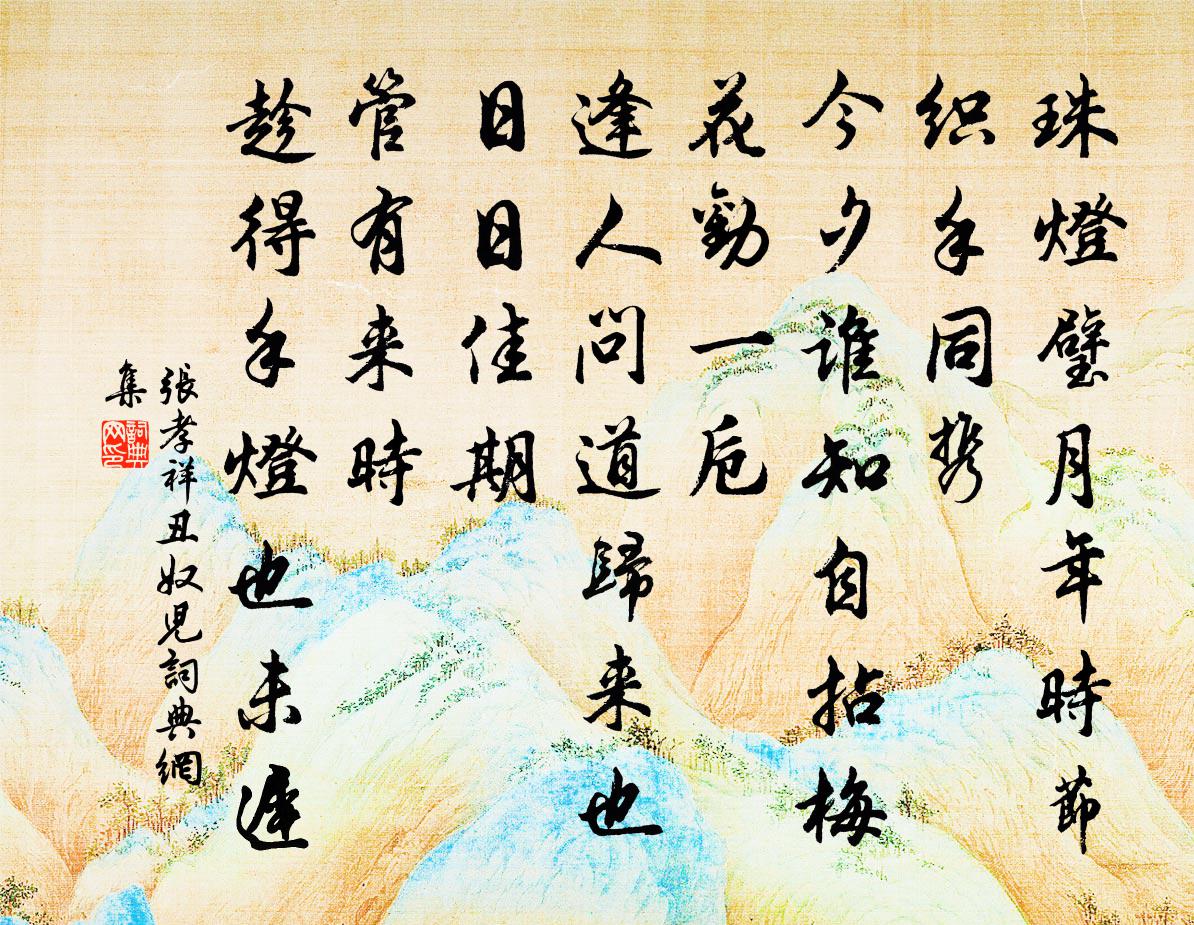 珠燈璧月年時節
织手同携
今夕誰知自拈梅
花勸一卮
逢人問道歸来也
日日佳期
管有来時
趁得手燈也未遲
張孝祥丑奴児詞典網
集
詞典网印